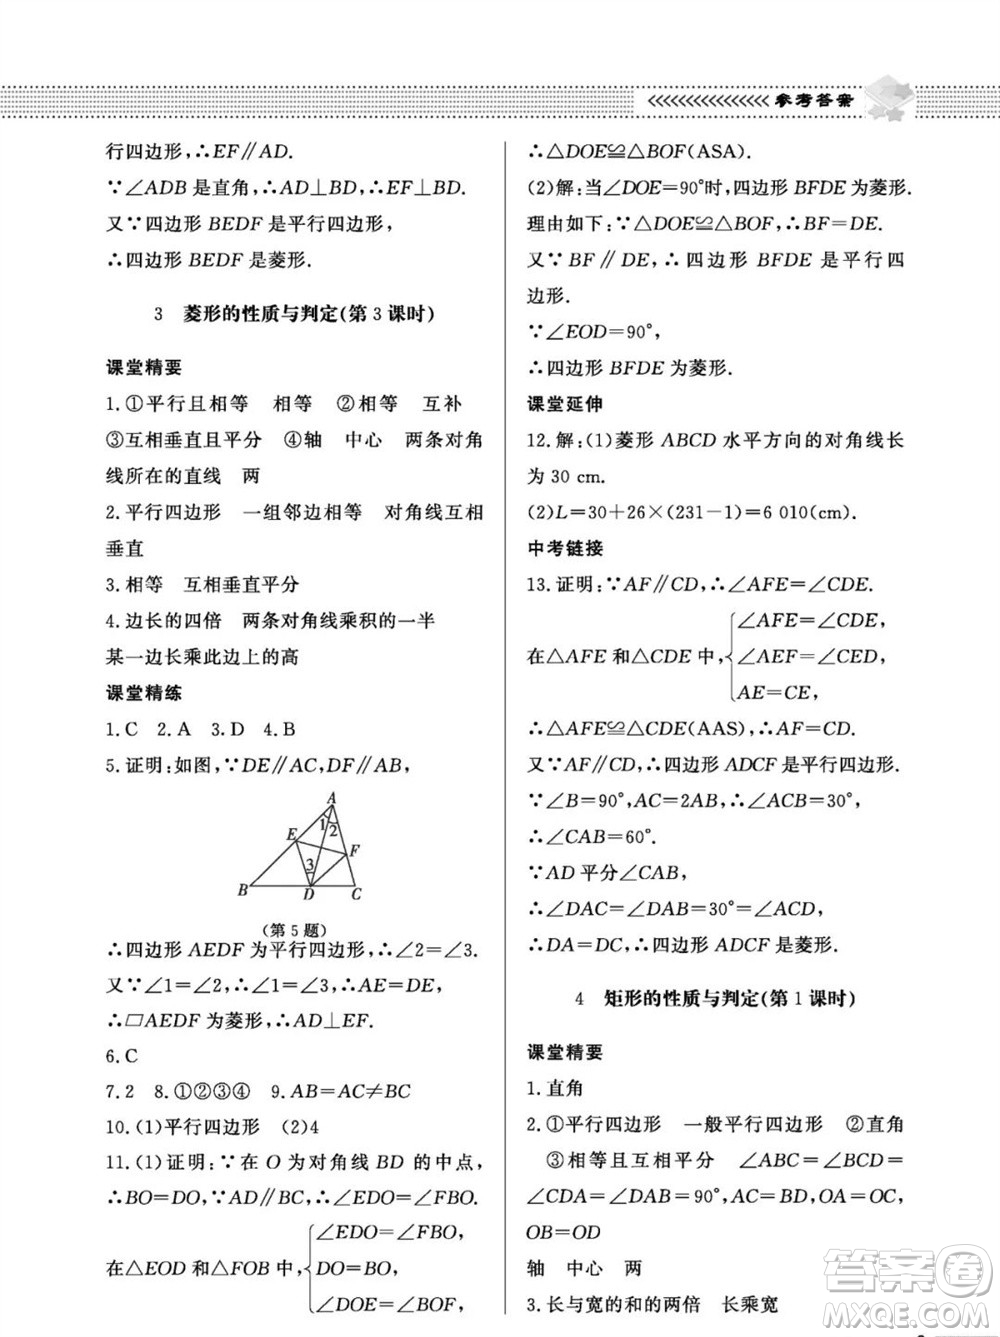 参考答案
行四边形，∴EF∥AD.
∵∠ADB是直角，∴AD⊥BD，∴EF⊥BD.
又∵四边形BEDF是平行四边形，
∴四边形BEDF是菱形.
3 菱形的性质与判定(第3课时)
课堂精要
1.①平行且相等 相等 ②相等 互补
③互相垂直且平分 ④轴 中心 两条对角
线所在的直线 两
2.平行四边形 一组邻边相等 对角线互相
垂直
3.相等 互相垂直平分
4.边长的四倍 两条对角线乘积的一半
某一边长乘此边上的高
课堂精练
1.C 2.A 3.D 4.B
5.证明:如图，∵DE∥AC,DF∥AB，
A
1 2
E
F
3
B D C
(第5题)
∴四边形AEDF为平行四边形，∴∠2=∠3.
又∵∠1=∠2，∴∠1=∠3，∴AE=DE，
∴□AEDF为菱形，∴AD⊥EF.
6.C
7.2 8.①②③④ 9.AB=AC≠BC
10.(1)平行四边形 (2)4
11.(1)证明:∵在O为对角线BD的中点，
∴BO=DO，∵AD∥BC，∴∠EDO=∠FBO.
∠EDO=∠FBO，
在△EOD和△FOB中，DO=BO，
∠EOD=∠FOB，
∴△DOE≌△BOF(ASA).
(2)解:当∠DOE=90°时，四边形BFDE为菱形.
理由如下:∵△DOE≌△BOF，∴BF=DE.
又∵BF∥DE，∴四边形BFDE是平行四
边形.
∵∠EOD=90°，
∴四边形BFDE为菱形.
课堂延伸
12.解:(1)菱形ABCD水平方向的对角线长
为30 cm.
(2)L=30+26×(231-1)=6 010(cm).
中考链接
13.证明:∵AF∥CD，∴∠AFE=∠CDE.
∠AFE=∠CDE，
在△AFE和△CDE中，∠AEF=∠CED，
AE=CE，
∴△AFE≌△CDE(AAS)，∴AF=CD.
又∵AF∥CD，∴四边形ADCF是平行四边形.
∵∠B=90°，AC=2AB，∴∠ACB=30°，
∴∠CAB=60°.
∵AD平分∠CAB，
∴∠DAC=∠DAB=30°=∠ACD，
∴DA=DC，∴四边形ADCF是菱形.
4 矩形的性质与判定(第1课时)
课堂精要
1.直角
2.①平行四边形 一般平行四边形 ②直角
③相等且互相平分 ∠ABC=∠BCD=
∠CDA=∠DAB=90°，AC=BD，OA=OC，
OB=OD
轴 中心 两
3.长与宽的和的两倍 长乘宽
答案圈
MXQE.COM